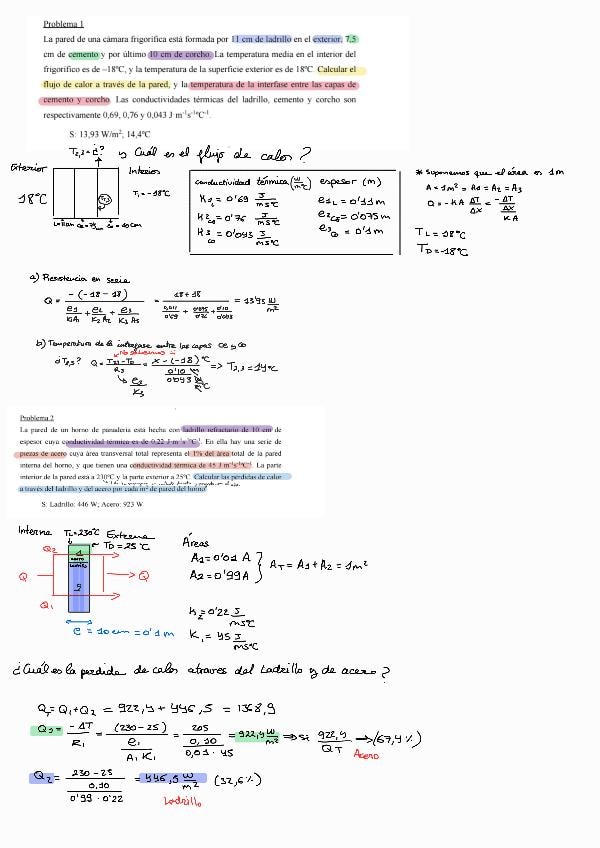 Problema 1
La pared de una cámara frigorífica está formada por 11 cm de ladrillo en el exterior, 7,5
cm de cemento y por último 10 cm de corcho. La temperatura media en el interior del
frigorífico es de –18ºC, y la temperatura de la superficie exterior es de 18ºC. Calcular el
flujo de calor a través de la pared, y la temperatura de la interfase entre las capas de
cemento y corcho. Las conductividades térmicas del ladrillo, cemento y corcho son
respectivamente 0,69, 0,76 y 0,043 J m⁻¹s⁻¹ºC⁻¹.
S: 13,93 W/m²; 14,4ºC
T2,3 = ¿? y Cuál es el flujo de calor?
Exterior
Interior
18ºC
T2,3
T1 = -18ºC
conductividad térmica (W/mºC)
espesor (m)
K1L = 0'69 J/msºC
e1L = 0'11m
K2ce = 0'76 J/msºC
e2ce = 0'075m
K3co = 0'043 J/msºC
e3co = 0'1m
* Suponemos que el área es 1m
A = 1m² = A1 = A2 = A3
Q = -KA ΔT/Δx = -ΔT/(Δx/KA)
TL = 18ºC
TD = -18ºC
a) Resistencia en serie
Q = -(-18-18)/(e1/K1A1 + e2/K2A2 + e3/K3A3) = 18+18/(0,011/0'69 + 0'075/0'76 + 0'10/0'043) = 13'93 W/m²
b) Temperatura de la interfase entre las capas ce y co
No sabemos
¿T2,3? Q = T2,3-TD/R3 = x-(-18)ºC/(0'10 m/0'043 W/mºC) => T2,3 = 14ºC
e3/K3
Problema 2
La pared de un horno de panadería está hecha con ladrillo refractario de 10 cm de
espesor cuya conductividad térmica es de 0,22 J m⁻¹s⁻¹ºC⁻¹. En ella hay una serie de
piezas de acero cuya área transversal total representa el 1% del área total de la pared
interna del horno, y que tienen una conductividad térmica de 45 J m⁻¹s⁻¹ºC⁻¹. La parte
interior de la pared está a 230ºC y la parte exterior a 25ºC. Calcular las pérdidas de calor
a través del ladrillo y del acero por cada m² de pared del horno.
S: Ladrillo: 446 W; Acero: 923 W
Interna TL=230ºC Externa
TD=25ºC
Q2
1
acero
Ladrillo
Q
2
Q
Q1
e = 10cm = 0'1m
Áreas
A1 = 0'01 A
A2 = 0'99 A
AT = A1 + A2 = 1m²
K2 = 0'22 J/msºC
K1 = 45 J/msºC
¿Cuál es la perdida de calor atraves del Ladrillo y de acero?
QT = Q1 + Q2 = 922,4 + 446,5 = 1368,9
Q1 = -ΔT/R1 = (230-25)/(e1/A1 K1) = 205/(0,10/0,01·45) = 922,4 W/m² => Si 922,4/QT → (67,4%)
Acero
Q2 = 230-25/(0,10/0'99·0'22) = 446,5 W/m² (32,6%)
Ladrillo